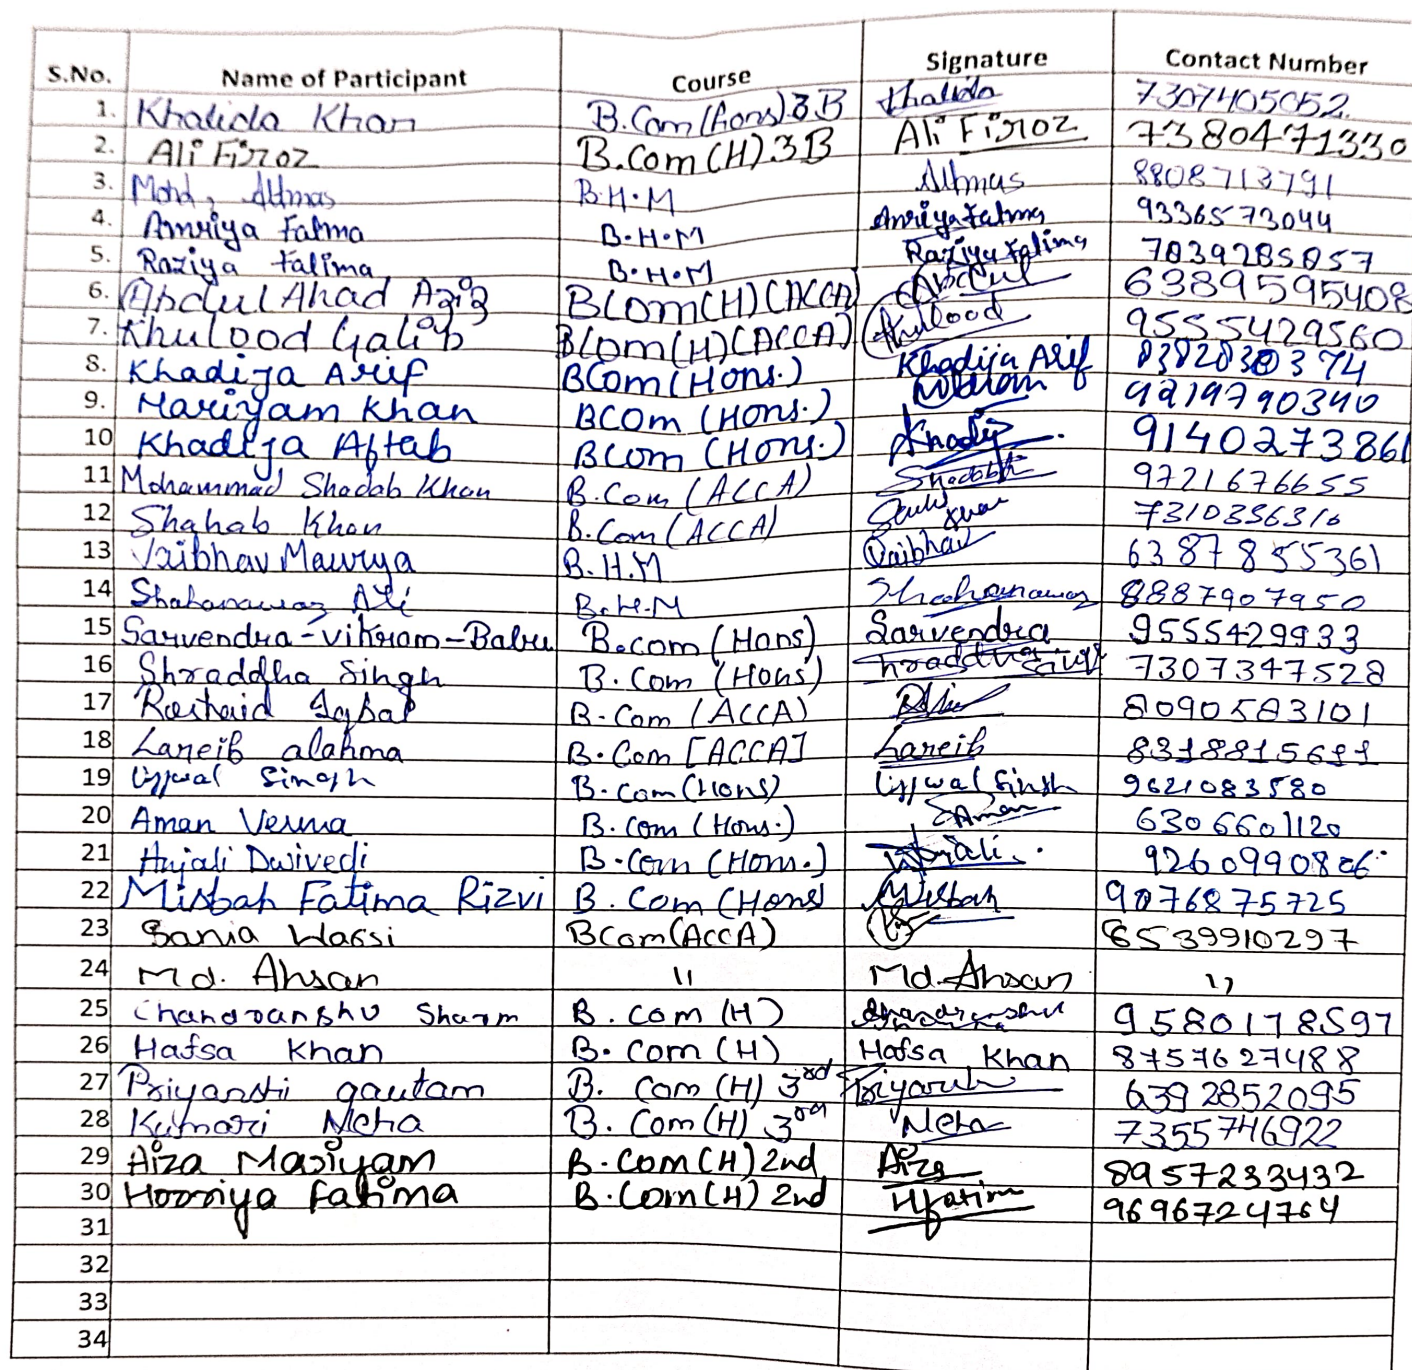 S.No. Name of Participant Course Signature Contact Number
1. Khalida Khan B.Com (Hons) 3B Khalida 7307405052
2. Ali Firoz B.Com (H) 3B Ali Firoz 7380471330
3. Mohd, Altmas B.H.M Altmas 8808713791
4. Amriya Fatma B.H.M Amriya Fatma 9336573044
5. Raziya Fatima B.H.M Raziya Fatima 7839285857
6. Abdul Ahad Aziz BCom(H) (ACCA) Abdul 6389595408
7. Khulood Galib BCom(H) (ACCA) Khulood 9555429560
8. Khadija Arif BCom (Hons.) Khadija Arif
9. Mariyam Khan BCOM (Hons.) 9219790340
10 Khadija Aftab BCom (Hons.) Khadija 9140273861
11 Mohammad Shadab Khan B.Com (ACCA) Shadabk 9721676655
12 Shahab Khan B.Com (ACCA) 7310356316
13 Vaibhav Maurya B.H.M Vaibhav 6387855361
14 Shahanawaz Ali B.H.M Shahanawaz 8887907950
15 Sarvendra-Vikram-Babu B.com (Hons) Sarvendra 9555429933
16 Shraddha Singh B.Com (Hons) 7307347528
17 Iqbal B.Com (ACCA) 8090583101
18 Lareib alahma B.Com [ACCA] Lareib 8318815611
19 Ujjwal Singh B.com (Hons) Ujjwal Singh 9621083580
20 Aman Verma B.Com (Hons.) Aman 6306601120
21 Anjali Dwivedi B.Com (Hons.) Anjali. 9260990806
22 Misbah Fatima Rizvi B.Com (Hons) Misbah 9076875725
23 Sania Warsi BCom (ACCA) 6539910297
24 Md. Ahsan " Md. Ahsan "
25 Chandranshu Sharm B.com (H) 9580178597
26 Hafsa Khan B.Com (H) Hafsa Khan 8757627488
27 Priyanshi gautam B. Com (H) 3rd 6392852095
28 Kumari Neha B. Com (H) 3rd Neha 7355746922
29 Aiza Mariyam B.Com (H) 2nd Aiza 8957233432
30 Hooriya Fatima B.Com (H) 2nd HFatima 9696724764
31
32
33
34